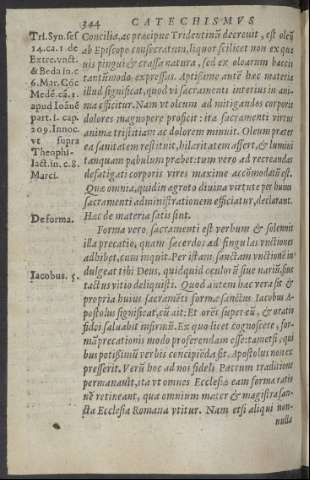 344 CATECHISMVS
Tri. Syn. sess
14. ca. 1. de
Extre. vnct.
& Beda in. c
6. Mar. Cõc
Medē. cā. 1.
apud Ioānē
part. 1. cap.
209. Innoc.
vt supra
Theophi-
lact. in. c. 8.
Marci.
De forma.
Iacobus. 5.
Concilia, ac præcipue Tridentinũ decreuit, est oleũ
ab Episcopo consecratum, liquor scilicet non ex qua
uis pingui & crassa natura, sed ex olearum baccis
tantũmodo expressus. Aptissime autē hæc materia
illud significat, quod vi sacramenti interius in ani-
ma efficitur. Nam vt oleum ad mitigandos corporis
dolores magnopere proficit: ita sacramenti virtus
animæ tristitiam ac dolorem minuit. Oleum præter
ea sanitatem restituit, hilaritatem affert, & lumini
tanquam pabulum præbet: tum vero ad recreandas
defatigati corporis vires maxime accõmodatũ est.
Quæ omnia, quid in ægroto diuina virtute per huius
sacramenti administrationem efficiatur, declarant.
Hæc de materia satis sint.
Forma vero sacramenti est verbum & solennis
illa precatio, quam sacerdos ad singulas vnctiones
adhibet, cum inquit. Per istam sanctam vnctionē in
dulgeat tibi Deus, quidquid oculorũ siue nariũ, siue
tactus vitio deliquisti. Quod autem hæc vera sit &
propria huius sacramēti forma sanctus Iacobus A-
postolus significat, cũ ait: Et orēt super eũ, & oratio
fidei saluabit infirmũ. Ex quo licet cognoscere, for-
mā precationis modo proferendam esse: tametsi, qui
bus potissimũ verbis concipiēda sit, Apostolus non ex
presserit. Verũ hoc ad nos fideli Patrum traditione
permanauit, ita vt omnes Ecclesiæ eam formæ ratio
nē retineant, qua omnium mater & magistra san-
cta Ecclesia Romana vtitur. Nam etsi aliqui non-
nulla